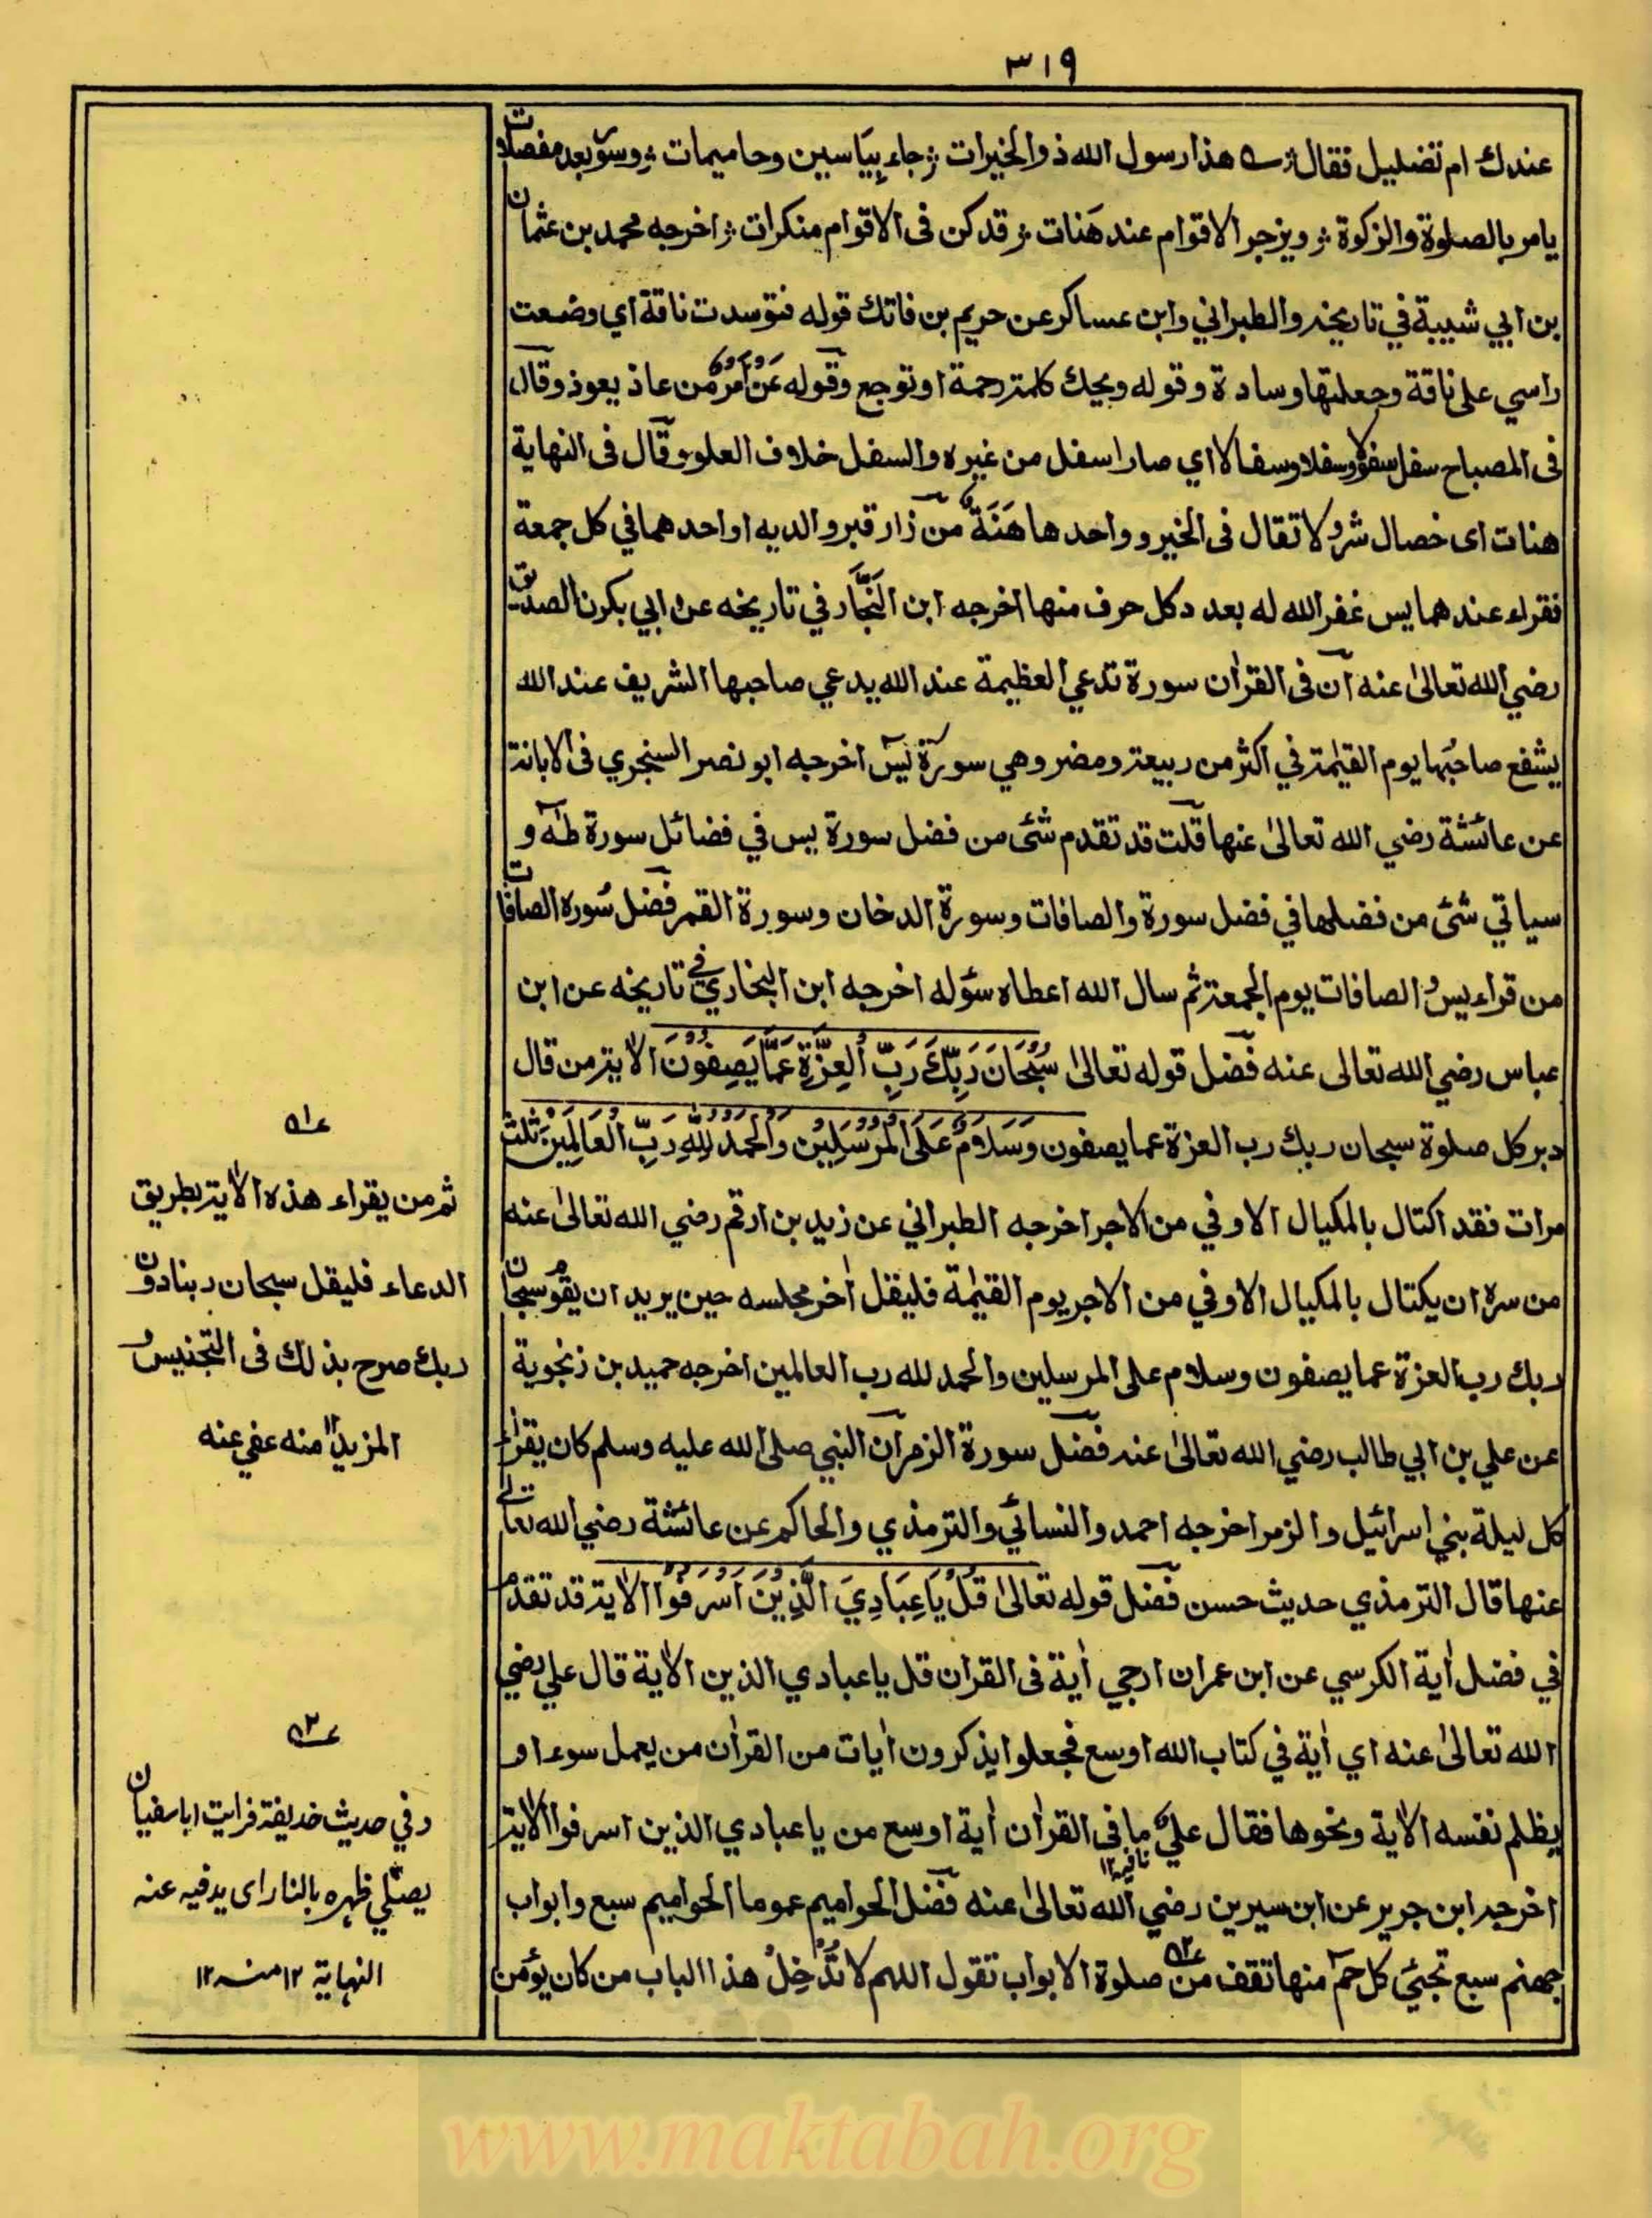 ٣١٩
عندك ام تضليل فقال هذا رسول الله ذو الخيرات جاء بياسين وحاميمات وسور بعد مفصلات
يامر بالصلوة والزكوة ويزجر الاقوام عند هَنات قد كن فى الاقوام منكرات اخرجه محمد بن عثمان
بن ابي شيبة في تاريخه والطبراني وابن عساكر عن حريم بن فاتك قوله فتوسدت ناقة اي وضعت
راسي على ناقة وجعلتها وسادة وقوله ويحك كلمة رحمة او توجع وقوله من عاذ يعوذ وقال
فى المصباح سفل سفولا وسفلا وسفالا اي صار اسفل من غيره والسفل خلاف العلو وقال فى النهاية
هنات اى خصال شر ولا تقال فى الخير وواحدها هَنَة من زار قبر والديه او احدهما في كل جمعة
فقراء عندهما يس غفر الله له بعدد كل حرف منها اخرجه ابن النَجَّار في تاريخه عن ابي بكرن الصديق
رضي الله تعالىٰ عنه ان فى القراٰن سورة تدعي العظيمة عند الله يدعي صاحبها الشريف عند الله
يشفع صاحبُها يوم القيٰمة في اكثر من ربيعة ومضر وهي سورة يٰس اخرجه ابو نصر السنجري فى الابانة
عن عائشة رضي الله تعالىٰ عنها قلت قد تقدم شئ من فضل سورة يس في فضائل سورة طٰهٰ و
سياتي شئ من فضلها في فضل سورة والصافات وسورة الدخان وسورة القمر فضل سُورة الصافات
من قراء يس والصافات يوم الجمعة ثم سال الله اعطاه سؤله اخرجه ابن البخاري في تاريخه عن ابن
عباس رضي الله تعالى عنه فضل قوله تعالىٰ سُبْحَانَ رَبِّكَ رَبِّ الْعِزَّةِ عَمَّا يَصِفُوْنَ الاٰية من قال
دبر كل صلوة سبحان ربك رب العزة عما يصفون وَسَلَامٌ عَلَى الْمُرْسَلِيْنَ وَالْحَمْدُ لِلّٰهِ رَبِّ الْعَالَمِيْنَ ثلث
مرات فقد اكتال بالمكيال الاوفي من الاجر اخرجه الطبراني عن زيد بن ارقم رضي الله تعالىٰ عنه
من سره ان يكتال بالمكيال الاوفي من الاجر يوم القيٰمة فليقل اٰخر مجلسه حين يريد ان يقوم سبحان
ربك رب العزة عما يصفون وسلام على المرسلين والحمد لله رب العالمين اخرجه حميد بن زنجوية
عن علي بن ابي طالب رضي الله تعالىٰ عنه فضل سورة الزمر ان النبي صلى الله عليه وسلم كان يقراء
كل ليلة بني اسرائيل والزمر اخرجه احمد والنسائي والترمذي والحاكم عن عائشة رضي الله تعالٰے
عنها قال الترمذي حديث حسن فضل قوله تعالىٰ قُلْ يَا عِبَادِيَ الَّذِيْنَ اَسْرَفُوْا الاٰية قد تقدم
في فضل اٰية الكرسي عن ابن عمران ارجي اٰية فى القراٰن قل يا عبادي الذين الاٰية قال علي رضي
الله تعالىٰ عنه اي اٰية في كتاب الله اوسع فجعلوا يذكرون اٰيات من القراٰن من يعمل سوء او
يظلم نفسه الاٰية ونحوها فقال علي ما فى القراٰن اٰية اوسع من يا عبادي الذين اسرفوا الاٰية
نافية١٢
اخرجه ابن جرير عن ابن سيرين رضي الله تعالىٰ عنه فضل الحواميم عموما الحواميم سبع وابواب
جهنم سبع تجئ كل حم منها تقف من صلوة الابواب تقول اللهم لا تُدْخِلْ هذا الباب من كان يؤمن
ثم من يقراء هذه الاٰية بطريق
الدعاء فليقل سبحان ربنا دون
ربك صرح بذلك فى التجنيس و
المزيد ١٢ منه عفي عنه
وفي حديث حذيفة فرايت ابا سفيان
يصلي ظهره بالنار اى يدفيه عنه
النهاية ١٢ منه ١٢
www.maktabah.org